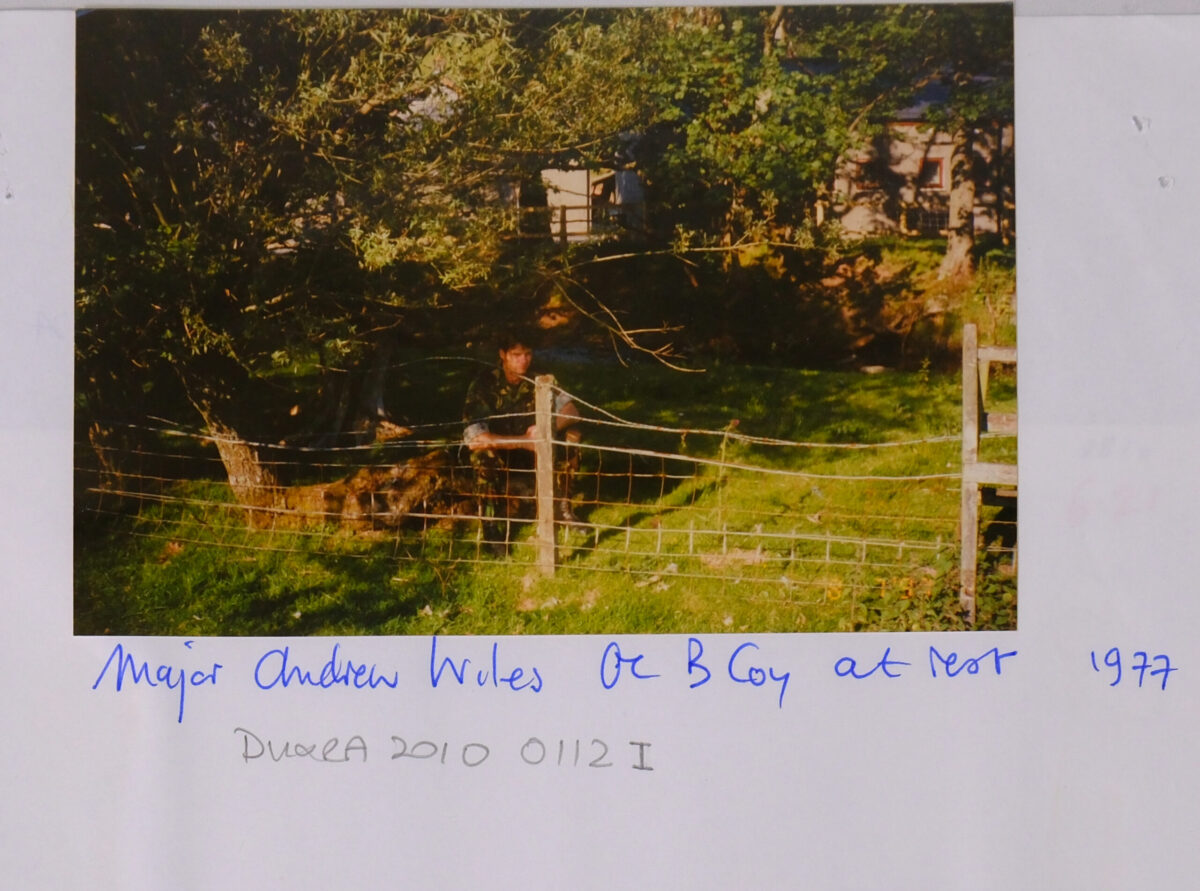 Major Andrew Wiles OC B Coy at rest 1977
2010 0112 I